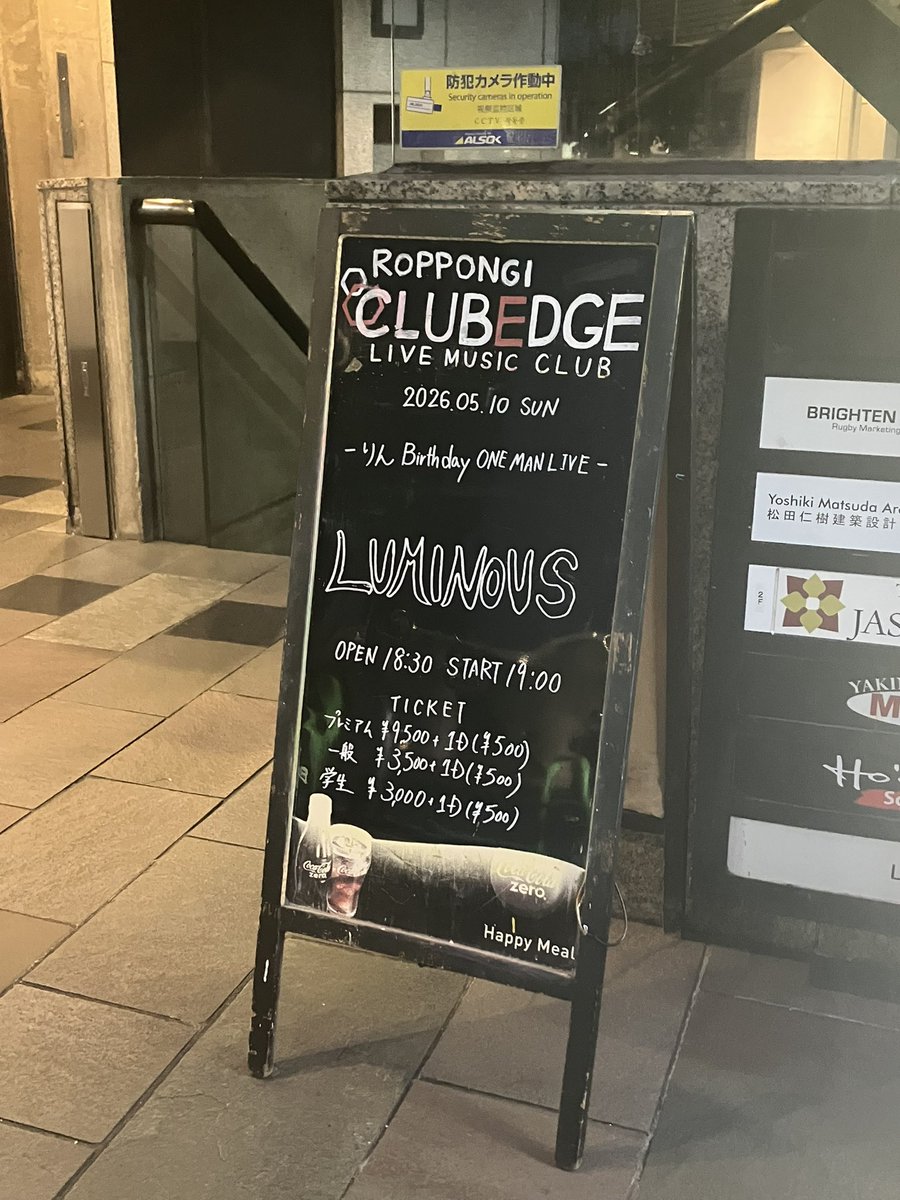 防犯カメラ作動中
Security cameras in operation
CCTV
ALSOK
ROPPONGI
CLUBEDGE
LIVE MUSIC CLUB
2026.05.10 SUN
-りん Birthday ONE MAN LIVE-
LUMINOUS
OPEN 18:30 START 19:00
TICKET
プレミアム ¥9,500+1D(¥500)
一般 ¥3,500+1D(¥500)
学生 ¥3,000+1D(¥500)
Coca-Cola zero.
Coca-Cola
Coca-Cola zero.
Happy Meal
BRIGHTEN
Rugby Marketing
Yoshiki Matsuda Arc
松田仁樹建築設計
2F
JAS
YAKI
M
Ho's